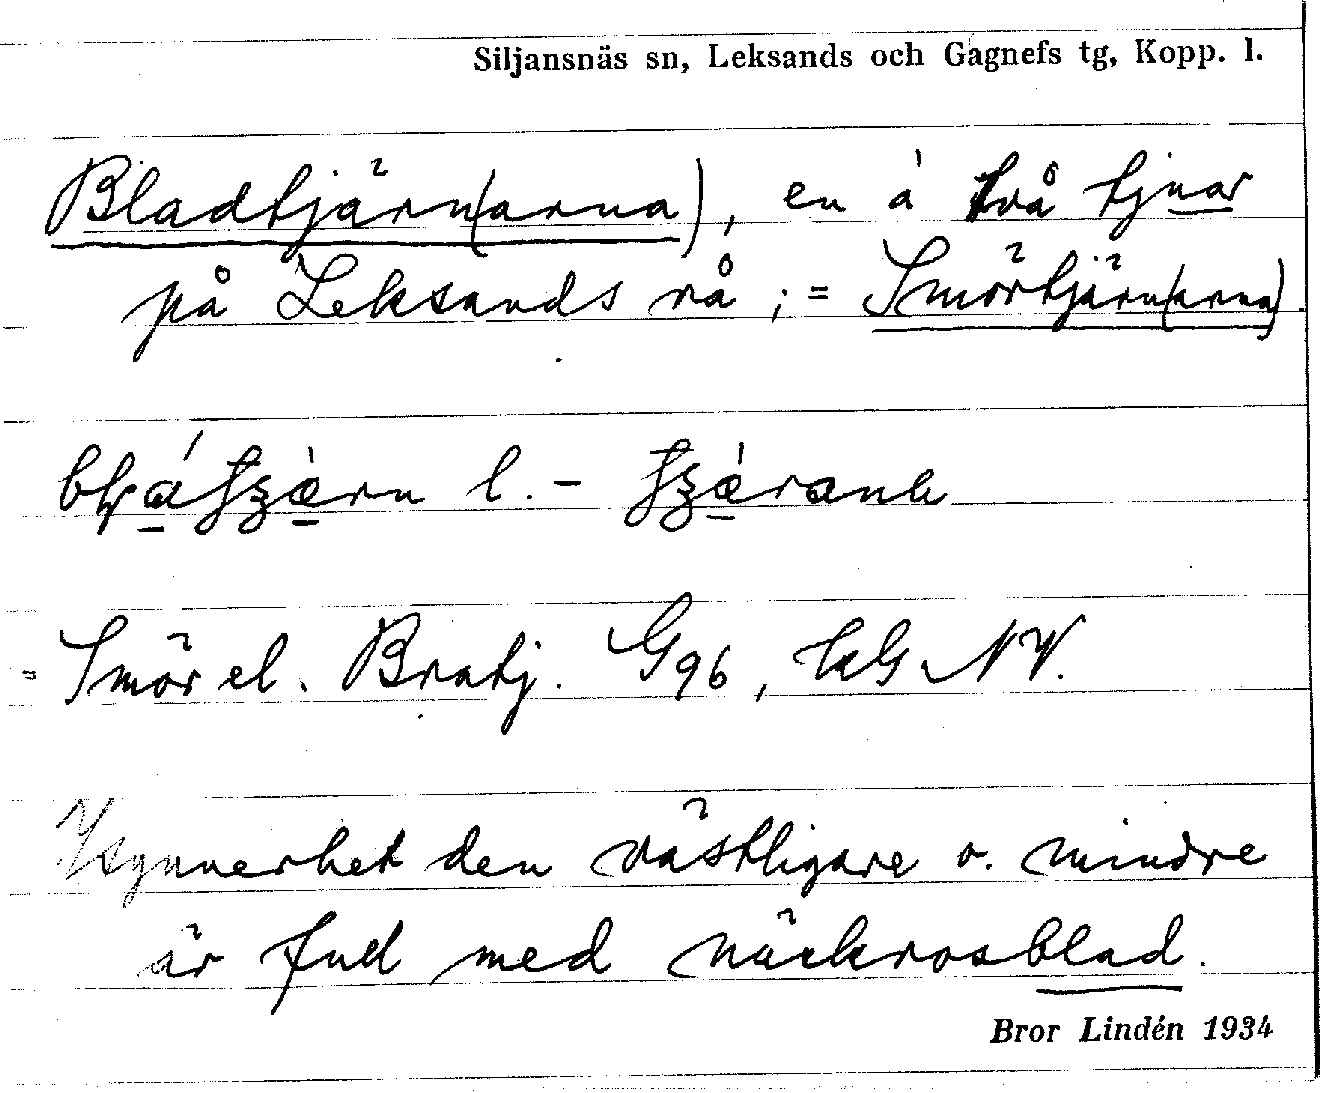 Siljansnäs sn, Leksands och Gagnefs tg, Kopp. l.
Bladtjärn(arna), en à två tjnar
på Leksands rå ; = Smörtjärn(arna)
l. -
= Smör el. Bratj. G96, NV.
Isynnerhet den västligare o. mindre
är full med näckrosblad.
Bror Lindén 1934